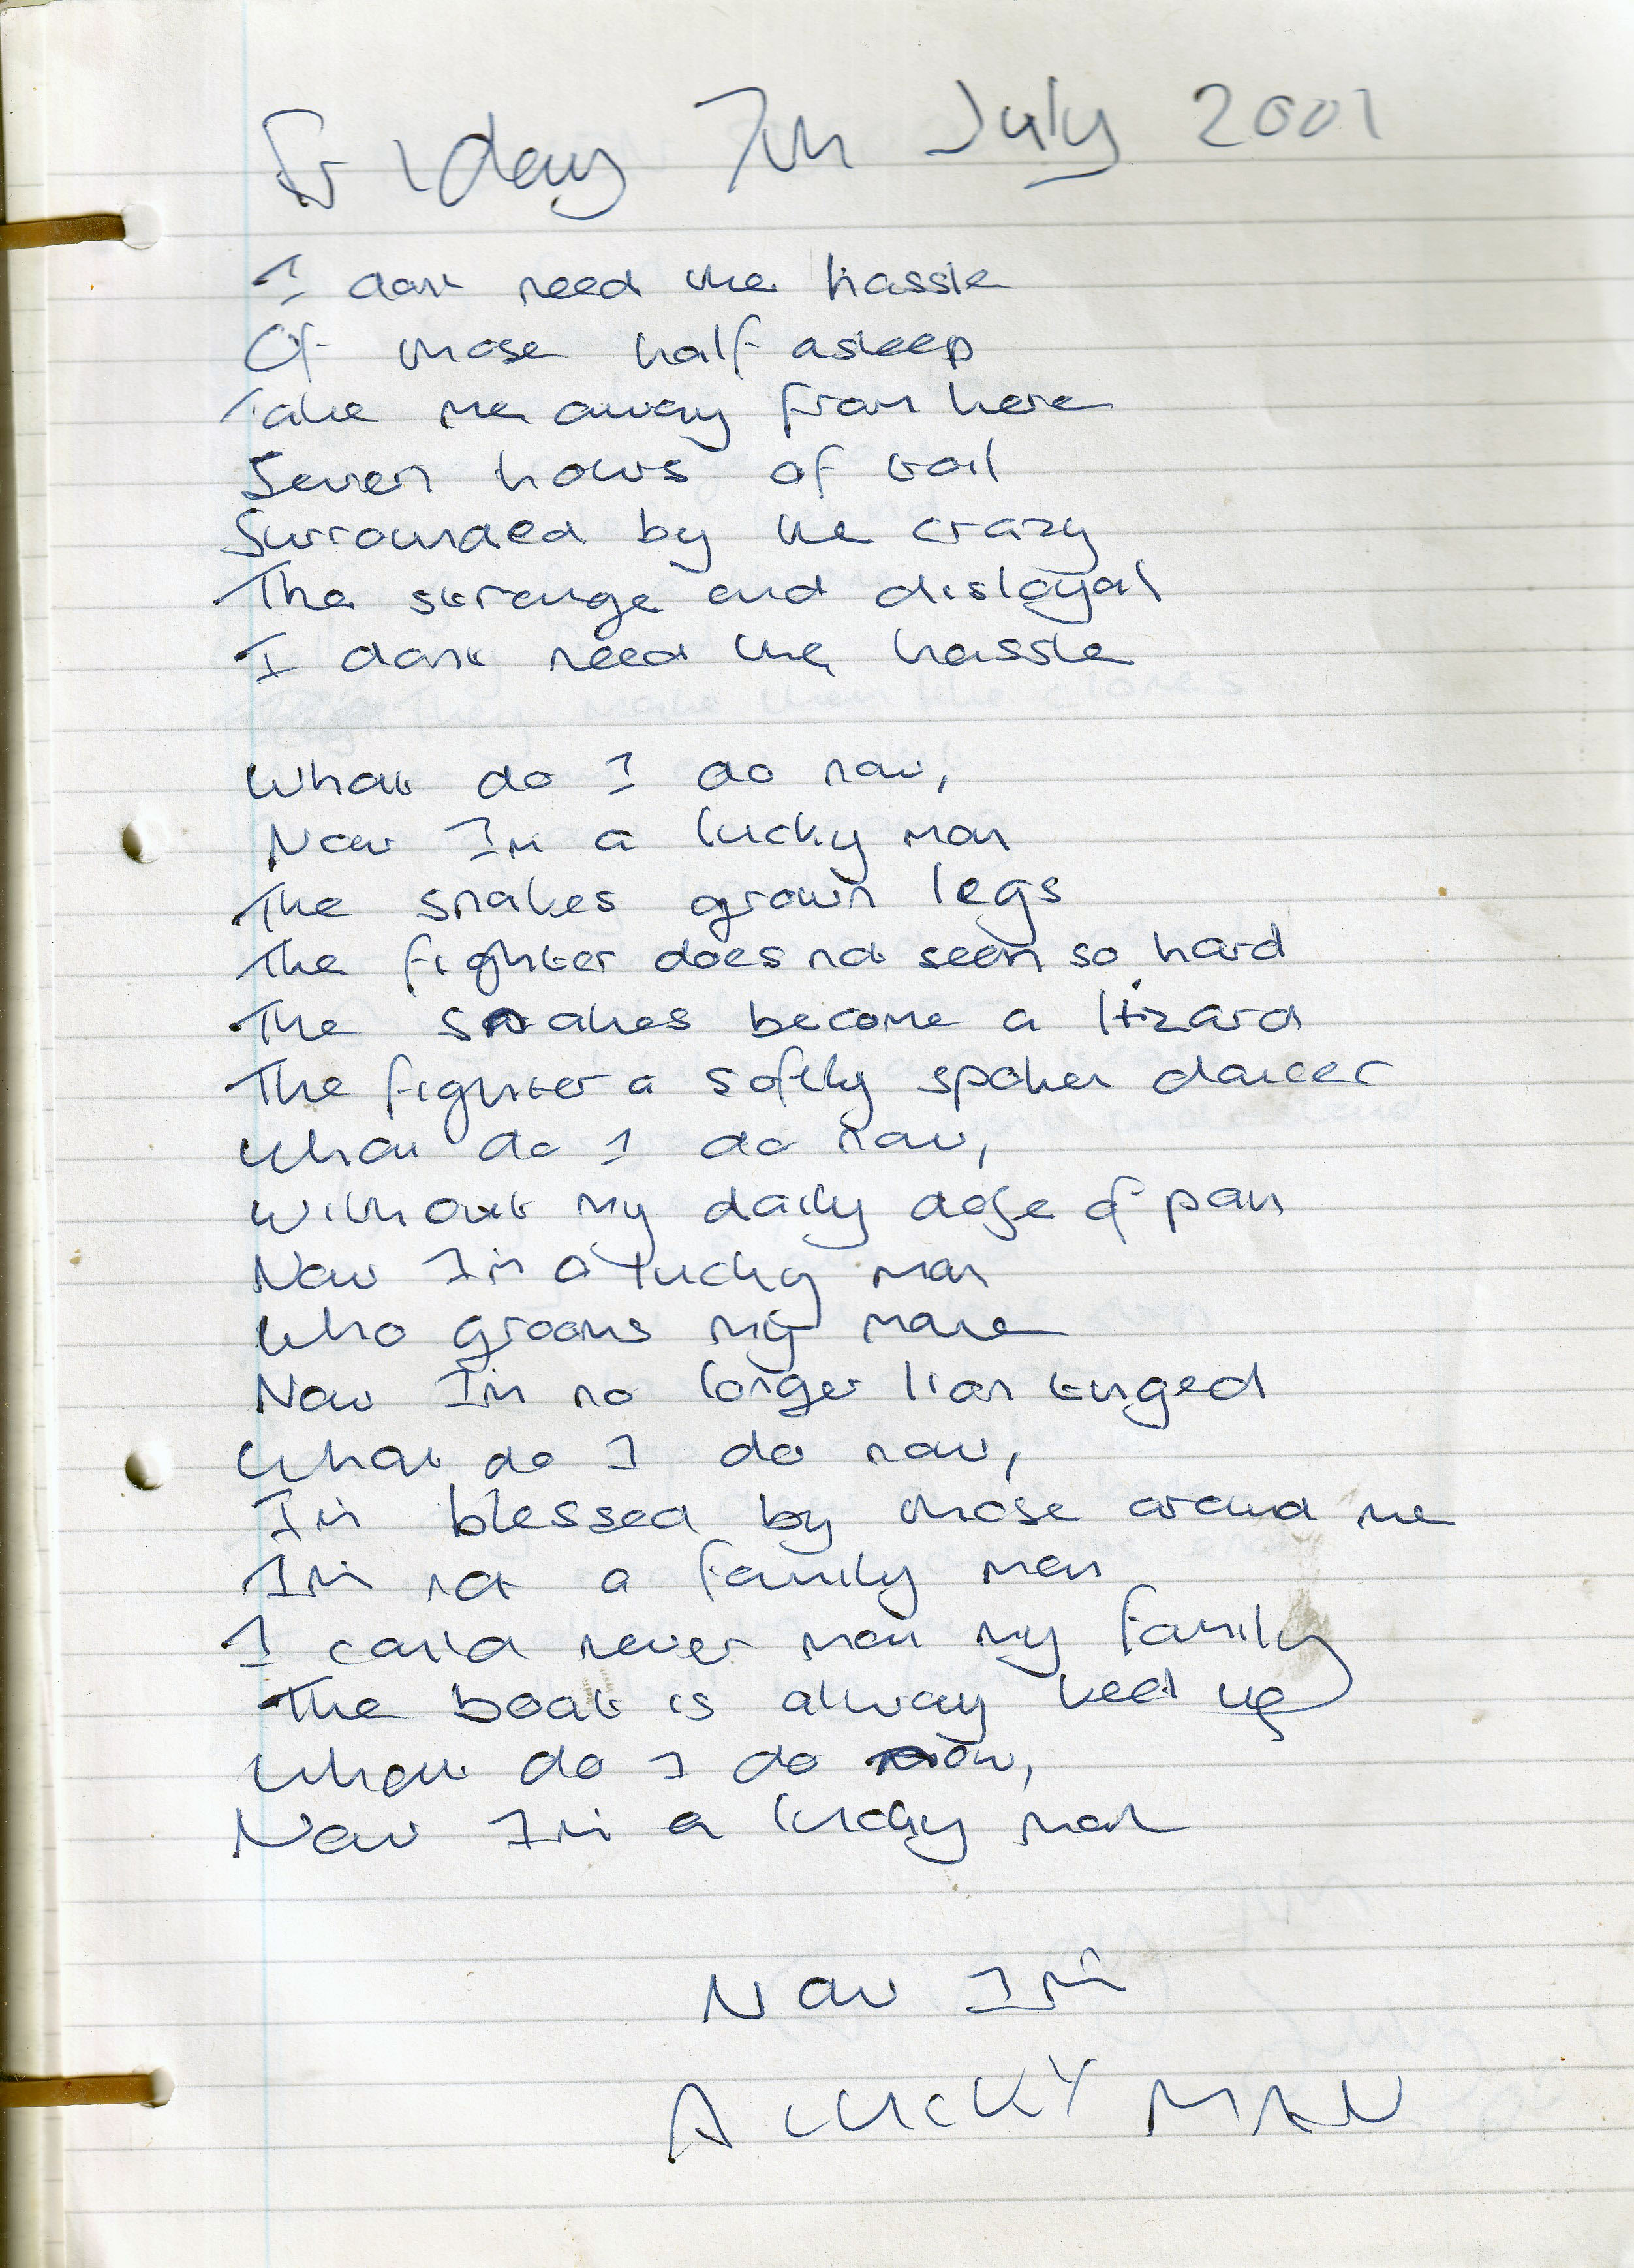 Friday 7th July 2001
I dont need the hassle
Of those half asleep
Take me away from here
Seven hours of toil
Surrounded by the crazy
The strange and disloyal
I dont need the hassle
What do I do now,
Now Im a lucky man
The snakes grown legs
The fighter does not seem so hard
The snakes become a lizard
The fighter a softly spoken dancer
What do I do now,
Without my daily dose of pain
Now Im a lucky man
Who grooms my mane
Now Im no longer lion tunged
What do I do now,
Im blessed by those around me
Im not a family man
I could never man my family
The boat is alway keel up
What do I do now,
Now Im a lucky man
Now Im
A LUCKY MAN